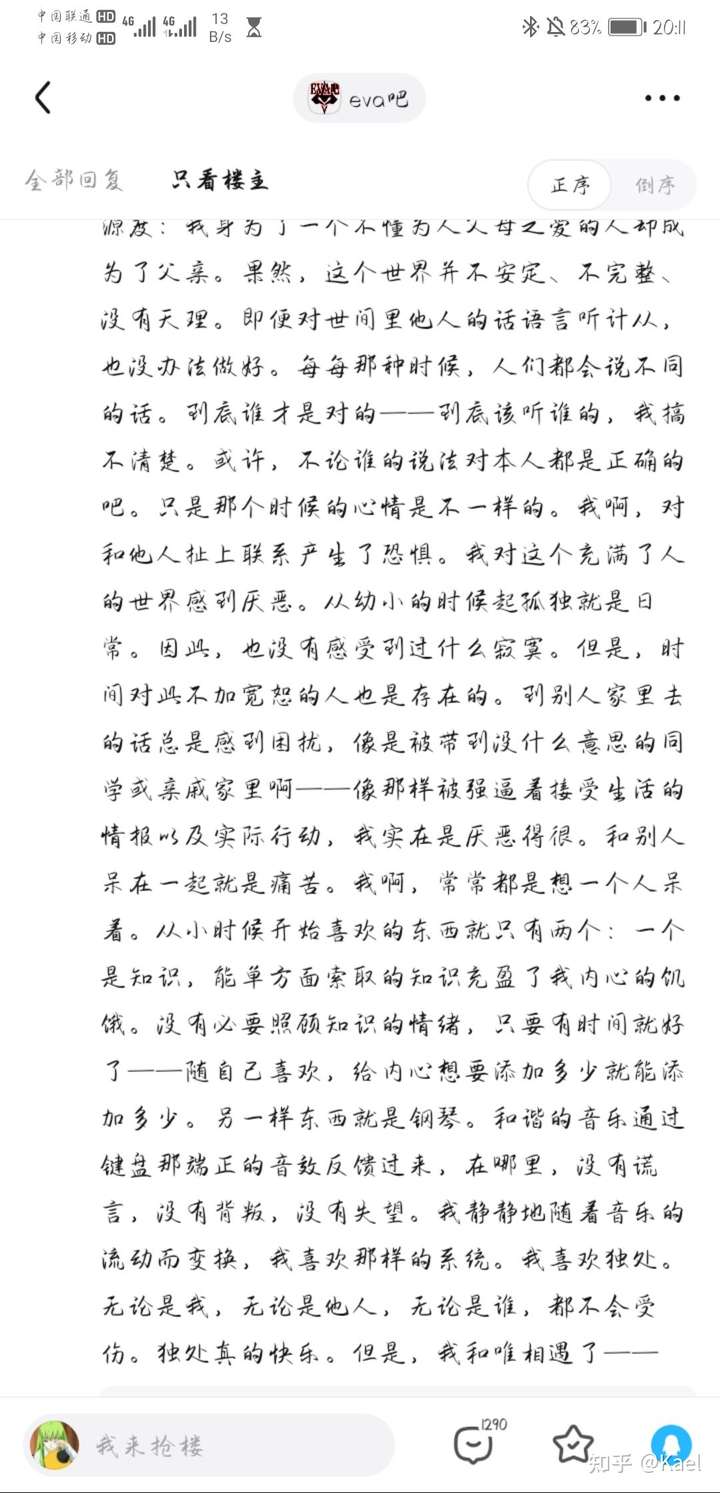 中国联通 HD 4G 4G 13 B/s 83% 20:11
中国移动 HD
eva吧
全部回复 只看楼主 正序 倒序
源度：我身为了一个不懂为人父母之爱的人却成
为了父亲。果然，这个世界并不安定、不完整、
没有天理。即便对世间里他人的话语言听计从，
也没办法做好。每每那种时候，人们都会说不同
的话。到底谁才是对的——到底该听谁的，我搞
不清楚。或许，不论谁的说法对本人都是正确的
吧。只是那个时候的心情是不一样的。我啊，对
和他人扯上联系产生了恐惧。我对这个充满了人
的世界感到厌恶。从幼小的时候起孤独就是日
常。因此，也没有感受到过什么寂寞。但是，时
间对此不加宽恕的人也是存在的。到别人家里去
的话总是感到困扰，像是被带到没什么意思的同
学或亲戚家里啊——像那样被强逼着接受生活的
情报以及实际行动，我实在是厌恶得很。和别人
呆在一起就是痛苦。我啊，常常都是想一个人呆
着。从小时候开始喜欢的东西就只有两个：一个
是知识，能单方面索取的知识充盈了我内心的饥
饿。没有必要照顾知识的情绪，只要有时间就好
了——随自己喜欢，给内心想要添加多少就能添
加多少。另一样东西就是钢琴。和谐的音乐通过
键盘那端正的音效反馈过来，在哪里，没有谎
言，没有背叛，没有失望。我静静地随着音乐的
流动而变换，我喜欢那样的系统。我喜欢独处。
无论是我，无论是他人，无论是谁，都不会受
伤。独处真的快乐。但是，我和唯相遇了——
我来抢楼 1290
知乎 @Kael